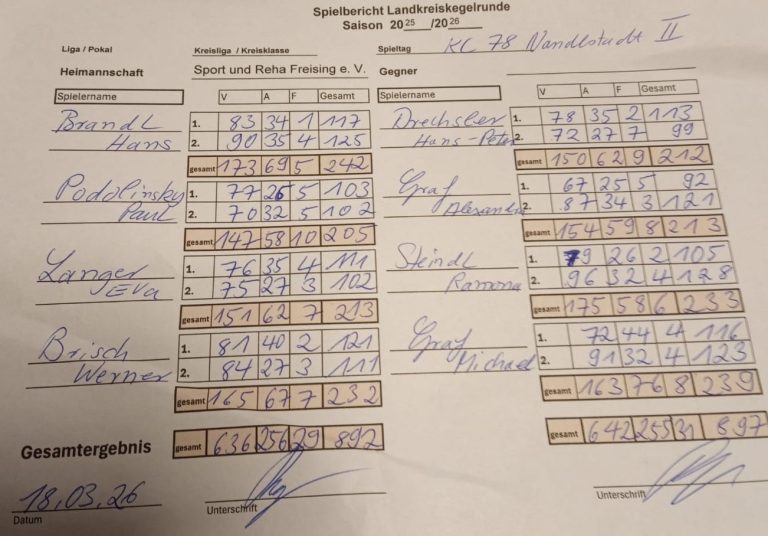 Spielbericht Landkreiskegelrunde
Saison 2025/2026
Liga / Pokal Kreisliga / Kreisklasse Spieltag KC 78 Nandlstadt II
Heimannschaft Sport und Reha Freising e. V. Gegner
Spielername V A F Gesamt Spielername V A F Gesamt
Brandl 1. 83 34 1 117 Drechsler 1. 78 35 2 113
Hans 2. 90 35 4 125 Hans-Peter 2. 72 27 7 99
gesamt 173 69 5 242 gesamt 150 62 9 212
Podolinsky 1. 77 26 5 103 Graf 1. 67 25 5 92
Paul 2. 70 32 5 102 Alexander 2. 87 34 3 121
gesamt 147 58 10 205 gesamt 154 59 8 213
Langer 1. 76 35 4 111 Steindl 1. 79 26 2 105
Eva 2. 75 27 3 102 Ramona 2. 96 32 4 128
gesamt 151 62 7 213 gesamt 175 58 6 233
Brisch 1. 81 40 2 121 Graf 1. 72 44 4 116
Werner 2. 84 27 3 111 Michael 2. 91 32 4 123
gesamt 165 67 7 232 gesamt 163 76 8 239
Gesamtergebnis gesamt 636 256 29 892 gesamt 642 255 31 897
18.03.26
Datum Unterschrift Unterschrift